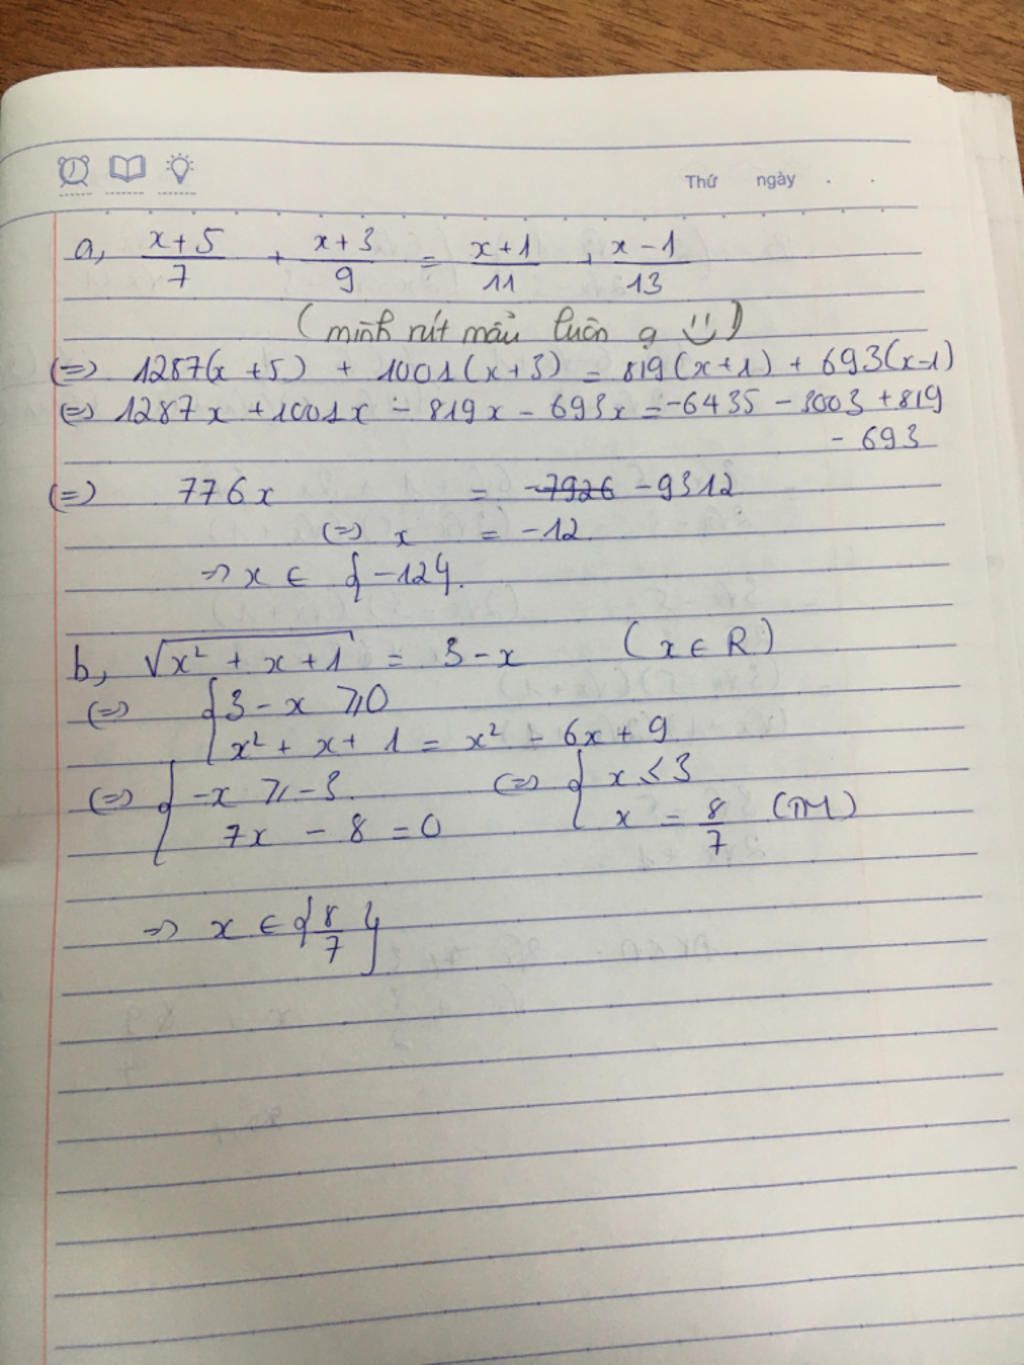 Thứ ngày . .
a, (x+5)/7 + (x+3)/9 = (x+1)/11 + (x-1)/13
(mình rút mẫu luôn ạ :))
(=) 1287(x+5) + 1001(x+3) = 819(x+1) + 693(x-1)
(=) 1287x + 1001x - 819x - 693x = -6435 - 3003 + 819
- 693
(=) 776x = -7926 -9312
(=) x = -12
=> x ∈ {-12}.
b, √(x² + x + 1) = 3 - x (x ∈ R)
(=) { 3 - x ≥ 0
x² + x + 1 = x² - 6x + 9
(=) { -x ≥ -3 (=) { x ≤ 3
7x - 8 = 0 x = 8/7 (TM)
=> x ∈ {8/7}